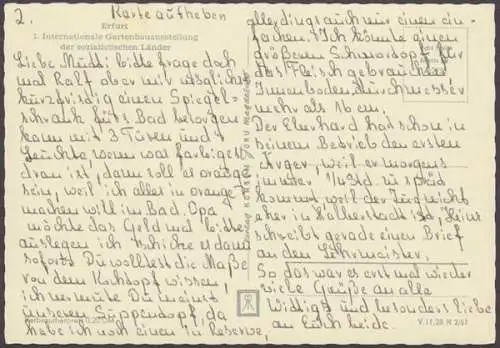 2. Karte aufheben
Erfurt
1. Internationale Gartenbauausstellung
der sozialistischen Länder
Liebe Mutti! bitte frage doch
mal Ralf aber mir möglichst
kurzfristig einen Spiegel-
schrank fürs Bad besorgen
kann mit 3 Türen und
Leuchte, wenn was farbiges
dran ist, dann soll es orange
sein, weil ich alles in orange
machen will im Bad. Opa
möchte das Geld mal bitte
auslegen ich schicke es dann
sofort. Du wolltest die Maße
von dem Kochtopf wissen,
ich vermute Du meinst
unseren Suppentopf, da
habe ich noch einen in Reserve,
allerdings auch nur einen ein-
fachen. Ich könnte einen
größeren Schmortopf für
das Fleisch gebrauchen
Innenbodendurchmesser
mehr als 16 cm.
Der Eberhard hat schon in
seinem Betrieb den ersten
Ärger, weil er morgens
immer 1/4 Std. zu spät
kommt weil der Zug nicht
eher in Halberstadt ist. Heinz
schreibt gerade einen Brief
an den Lehrmeister.
So das war es erst mal wieder
viele Grüße an alle
Wichtigt und besonders liebe
an Euch beide.
Verlag KONSUM FOTO Magdeburg
V 11,28 N 2/61